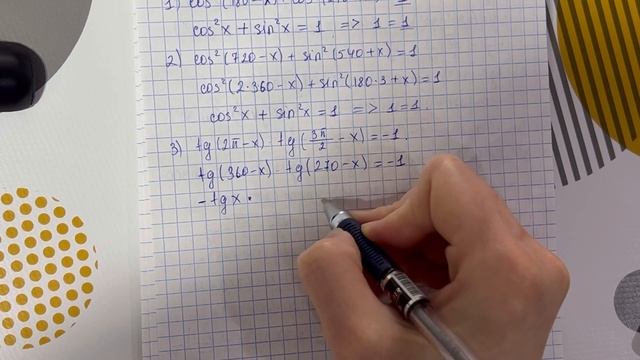 1) cos²(180-x)
cos²x + sin²x = 1 => 1 = 1
2) cos²(720-x) + sin²(540+x) = 1
cos²(2·360-x) + sin²(180·3+x) = 1
cos²x + sin²x = 1 => 1 = 1.
3) tg(2π-x) · tg(3π/2 - x) = -1.
tg(360-x) · tg(270-x) = -1
- tg x ·